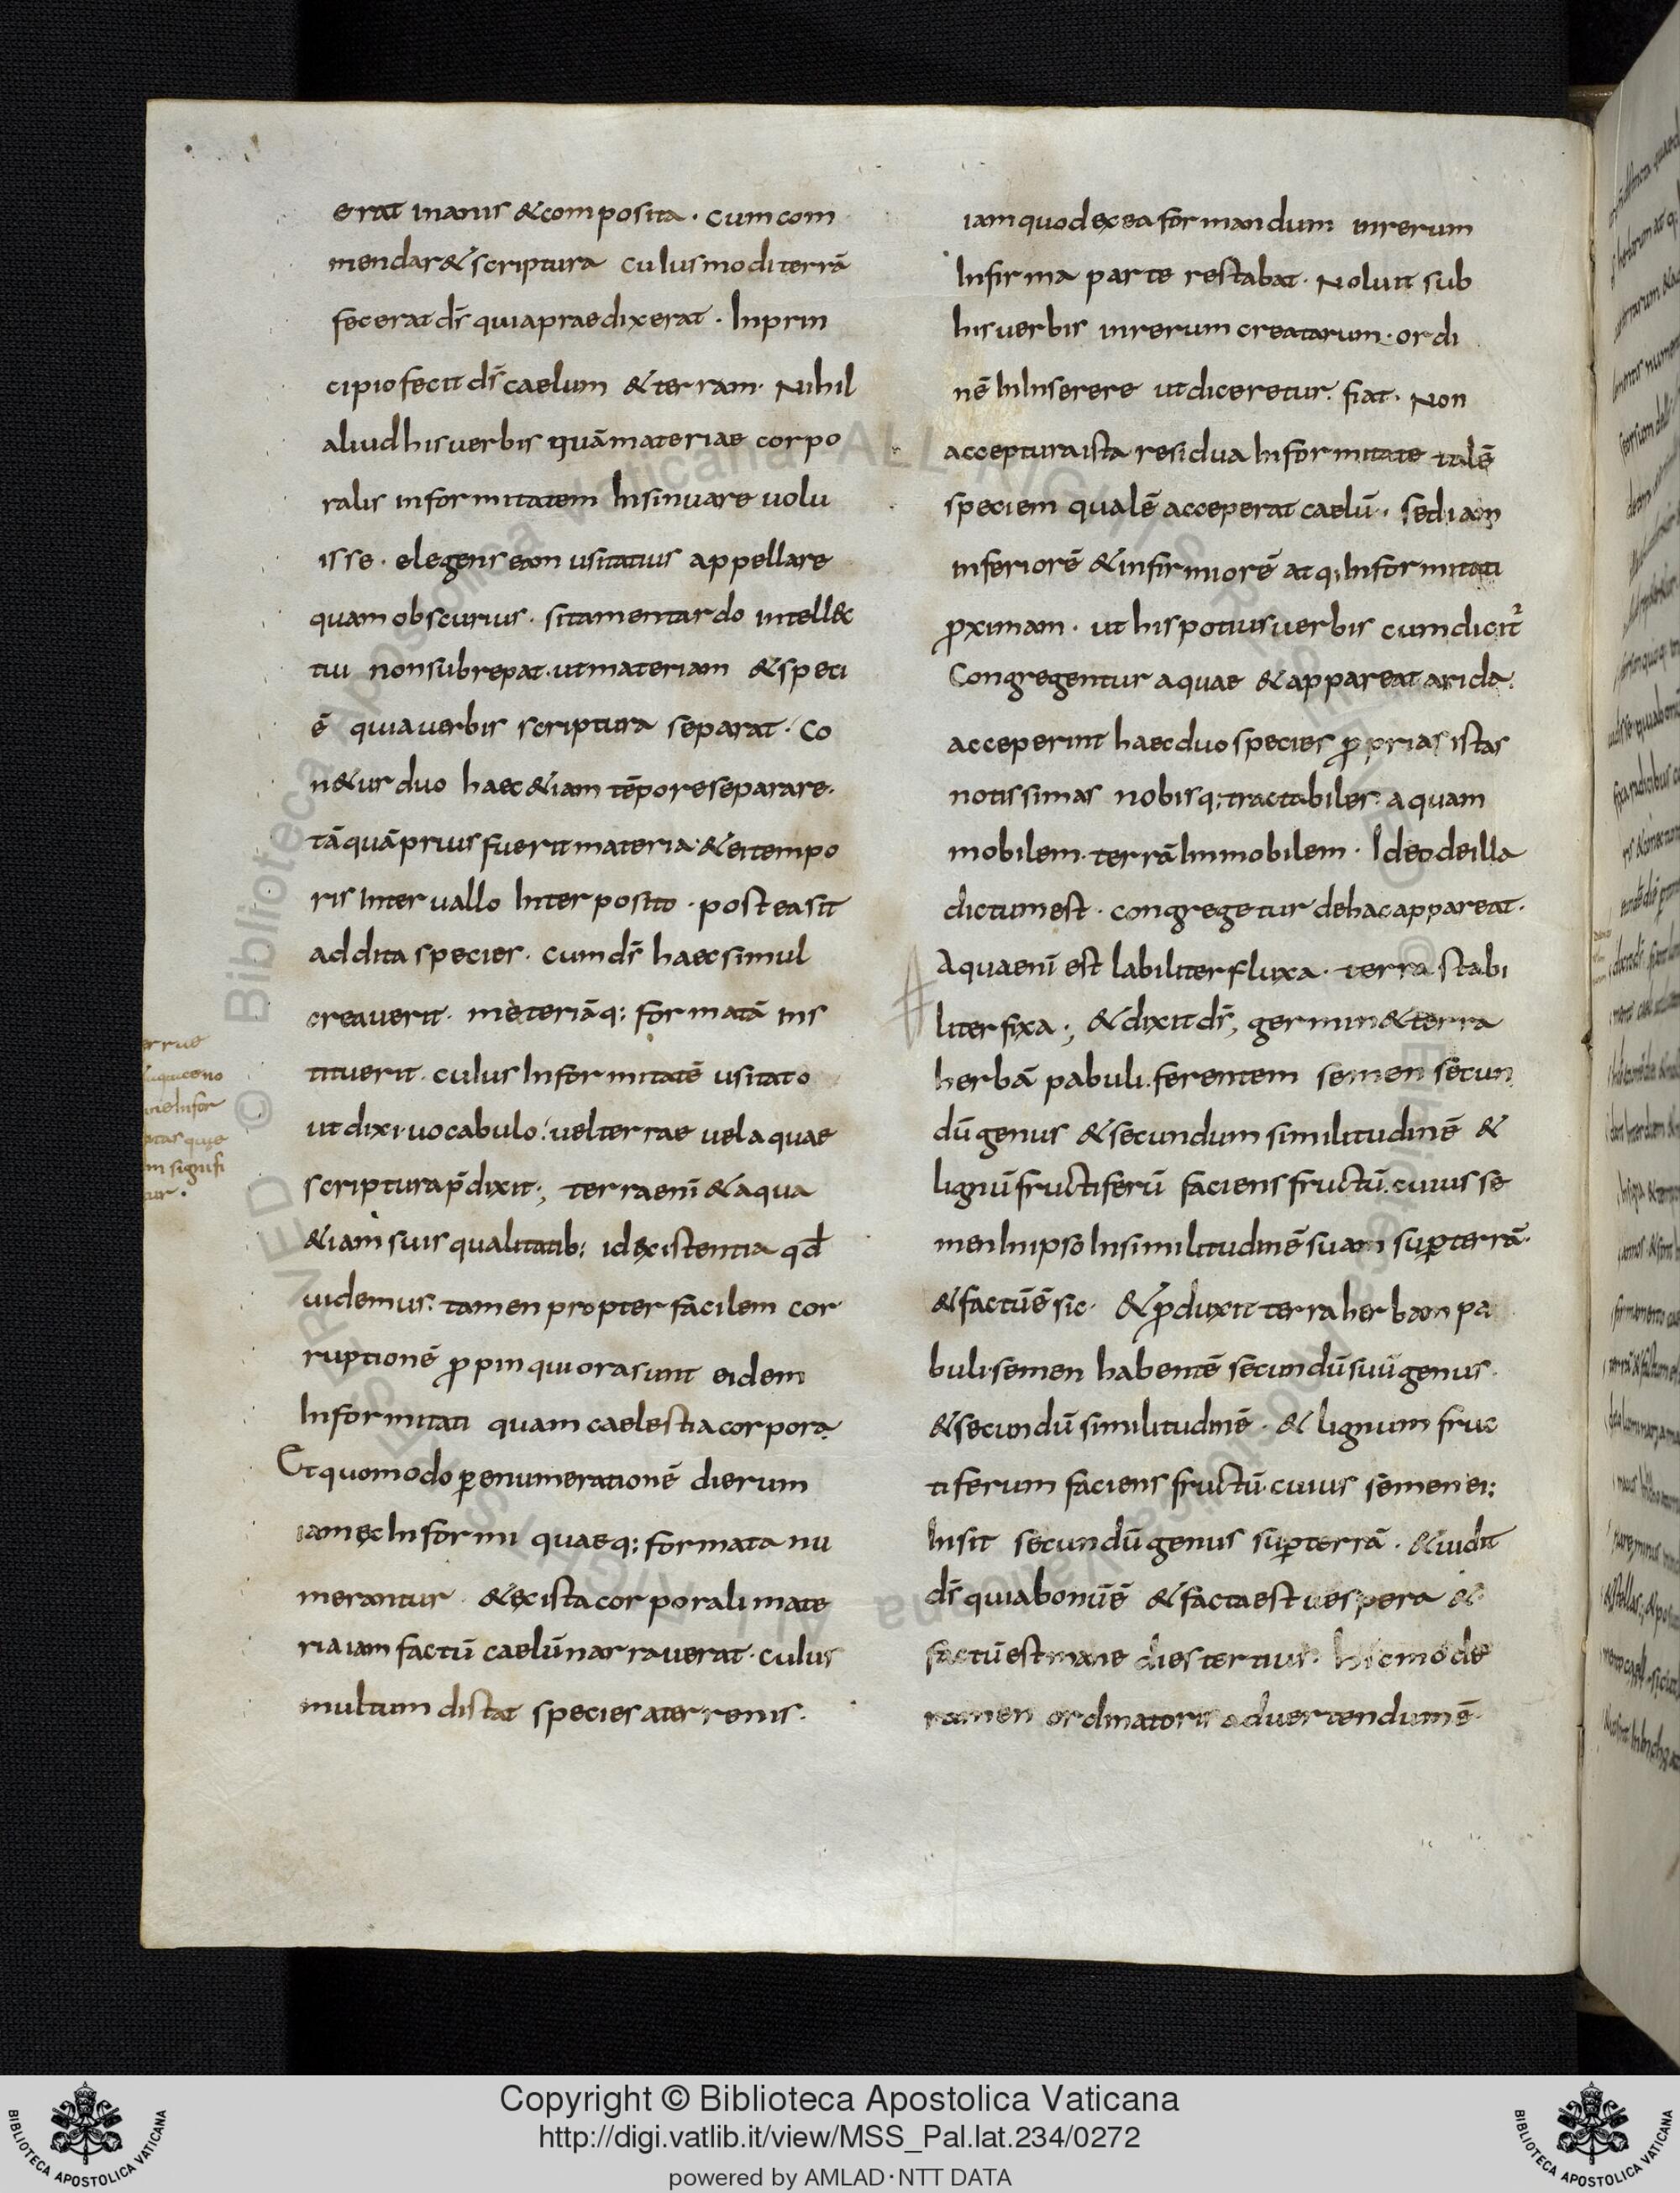 erat inanis & composita · cum com
mendar& scriptura cuIusmodi terrā
fecerat dš quia praedixerat · In prin
cipio fecit dš caelum & terram · Nihil
aliud his verbis quā materiae corpo
ralis informitatem Insinuare uolu
isse · elegens eam usitatius appellare
quam obscurius · si tamen tardo intell&c
tui non subrepat · ut materiam & speci
ē quia uerbis scriptura separat · Co
n&ur duo haec &iam tēpore separare ·
tāquā prius fuerit materia · & ei tempo
ris Interuallo Interposito · postea sit
addita species · cum dš haec simul
creauerit · meteriāq: formatā ins
tituerit · cuIus Informitatē usitato
ut dixi · uocabulo · uel terrae uel aquae
scriptura p̄dixit ·, terra enī & aqua
&iam suis qualitatib: id existentia qd̄
uidemus: tamen propter facilem cor
ruptionē ꝓpinquiora sunt eidem
Informitati quam caelestia corpora ·
Et quomodo ꝑ enumerationē dierum
iam ex Informi quaeq: formata nu
merantur · & ex ista corporali mate
ria iam factū caelū narrauerat · cuIus
multum distat species a terrenis ·
iam quod ex ea formandum in rerum
Infirma parte restabat · Noluit sub
his uerbis in rerum creatarum · ordi
nē InInserere ut diceretur · fiat · Non
acceptura ista residua Informitate talē
speciem qualē acceperat caelū · sed iam
inferiorē & infirmiorē atq; Informitati
ꝓximam · ut his potius uerbis cum dicit̄
Congregentur aquae & appareat arida ·
acceperint haec duo species ꝓprias istas
notissimas nobisq: tractabiles: aquam
mobilem · terrā Immobilem · Ideo de illa
dictum est · congregetur de hac appareat ·
Aqua enī est labiliter fluxa · terra stabi
liter fixa ·, & dixit dš, germin& terra
herbā pabuli · ferentem semen secun
dū genus & secundum similitudinē &
lignū fructiferū faciens fructū · cuius se
men In ipso In similitudinē suam suꝑ terrā ·
& factū ē sic · & ꝓduxit terra herbam pa
buli · semen habentē secundū suū genus ·
& secundū similitudinē · & lignum fruc
tiferum faciens fructū · cuius semen ei:
Insit secundū genus suꝑ terrā · & uidit
dš quia bonū ē & facta est uespera &
factū est mane dies tertius · hic mode
ramen ordinatoris aduertendum ē ·
m signifi
Copyright © Biblioteca Apostolica Vaticana
http://digi.vatlib.it/view/MSS_Pal.lat.234/0272
powered by AMLAD · NTT DATA
BIBLIOTECA APOSTOLICA VATICANA
BIBLIOTECA APOSTOLICA VATICANA